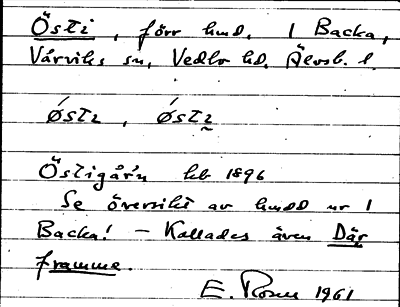 Östi, förr hmd, 1 Backa,
Vårviks sn, Vedbo hd, Älvsb. l.
ǿstɩ, ǿstɩ
Östigå'n hb 1896
Se översikt av hmdd nr 1
Backa! – Kallades även Där
framme.
E. Rosén 1961